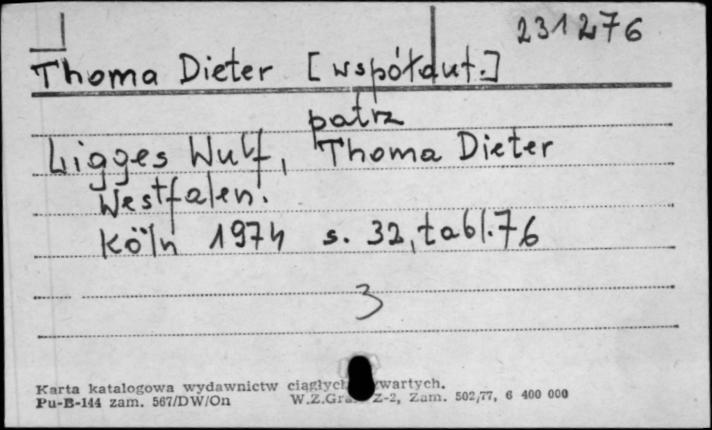 231276
Thoma Dieter [współaut.]
patrz
Ligges Wulf, Thoma Dieter
Westfalen.
Köln 1974 s. 32, tabl. 76
3
Karta katalogowa wydawnictw ciągłych
Pu-B-144 zam. 567/DW/On W.Z.Graf. Z-2, Zam. 502/77, 6 400 000